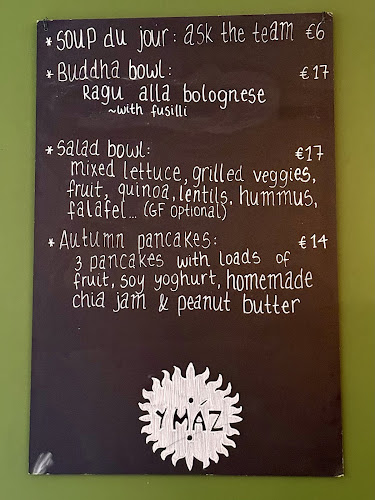 * Soup du jour: ask the team €6
* Buddha bowl: €17
Ragu alla bolognese
~with fusilli
* Salad bowl: €17
mixed lettuce, grilled veggies,
fruit, quinoa, lentils, hummus,
falafel... (GF optional)
* Autumn pancakes: €14
3 pancakes with loads of
fruit, soy yoghurt, homemade
chia jam & peanut butter
YMÁZ